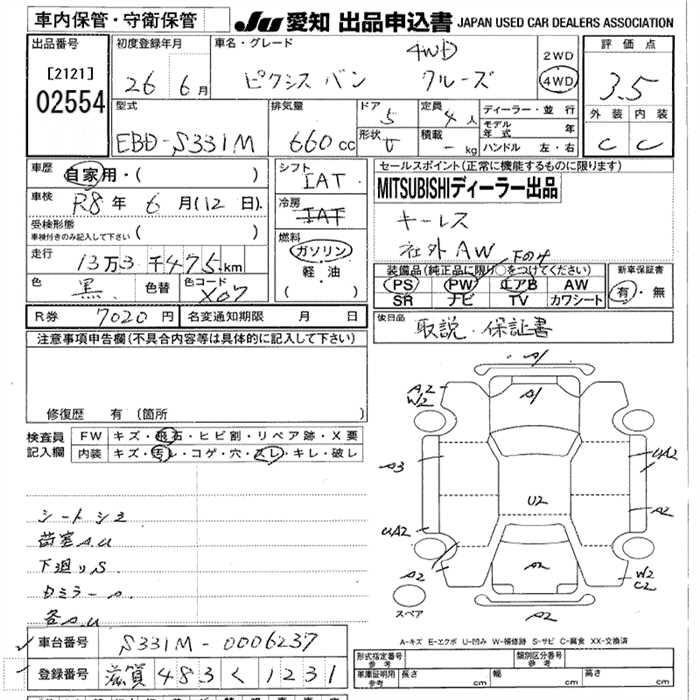 車内保管・守衛保管 JU 愛知 出品申込書 JAPAN USED CAR DEALERS ASSOCIATION
出品番号 初度登録年月 車名・グレード 4WD 2WD 評価点
[2121] 26 6月 ピクシス バン クルーズ 4WD 3.5
02554
型式 排気量 ドア 5 定員 4人 ディーラー・並行 外装 内装
EBD-S331M 660cc 形状 V 積載 - kg モデル年式 年 C C
ハンドル 左・右
車歴 自家用・( ) シフト IAT セールスポイント(正常に機能するものに限ります)
車検 R8年 6月(12日) 冷房 IAT MITSUBISHIディーラー出品
受検形態 車検付きのみ記入して下さい ( ) キーレス
走行 13万3千475km 燃料 ガソリン 社外AW 下のみ
軽・油 ( )
装備品(純正品に限り○をつけてください) 新車保証書
色 黒 色替 色コード X07 PS PW エアB AW 有・無
SR ナビ TV カワシート
R券 7020円 名変通知期限 月 日 後日品 取説・保証書
注意事項申告欄(不具合内容等は具体的に記入して下さい)
修復歴 有(箇所 )
検査員記入欄 FW キズ・飛石・ヒビ割・リペア跡・X要
内装 キズ・汚レ・コゲ・穴・スレ・キレ・破レ
A1
A1
A2
W2
A3 UA2
U2 A2
UA2
A2 A2 W2
C2
A2
スペア
シートシミ
荷室A.U
下廻りS
各A.U
A-キズ E-エクボ U-凹み W-補修跡 S-サビ C-腐食 XX-交換済
車台番号 S331M-0006237
登録番号 滋賀 483 く 1231
形式指定番号 参考 類別区分番号 参考
車庫証明用 参考 長さ cm 幅 cm 高さ cm